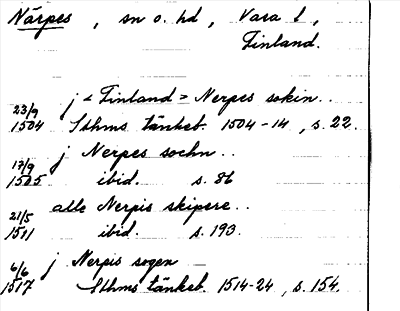 Närpes, sn o. hd, Vasa l,
Finland.
j < Finland > Nerpes sokin..
23/9
1504 Sthms tänkeb. 1504-14, s. 22.
j Nerpes sochn..
17/9
1505 ibid. s. 86
alle Nerpis skipere..
21/5
1511 ibid. s. 193.
j Nerpis sogen
6/6
1517 Sthms tänkeb. 1514-24, s. 154.